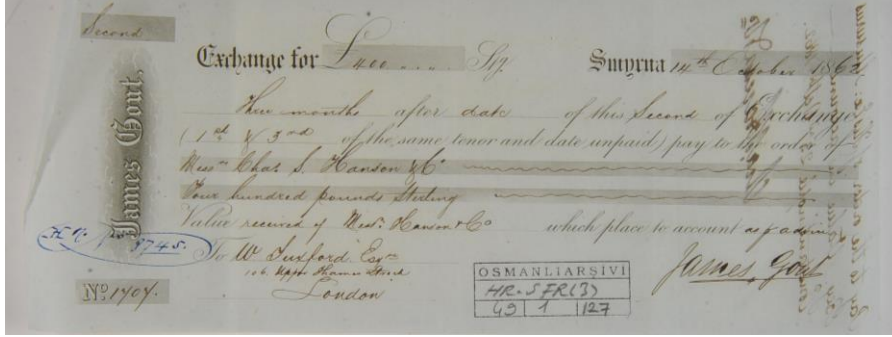 Second
Exchange for £400 .... Stg. Smyrna 14th October 1862
Three months after date of this Second of Exchange
(1st & 3rd of the same tenor and date unpaid) pay to the order of
Messrs Chas S. Hanson & Co
Four hundred pounds Sterling
Value received of Messrs Hanson & Co which place to account as p advice
To W Tuxford Esqre
106 Upper Thames Street
London
James Gout
James Gout.
No 8745.
No 1707.
OSMANLI ARŞİVİ
HR.SFR(3)
49 1 127